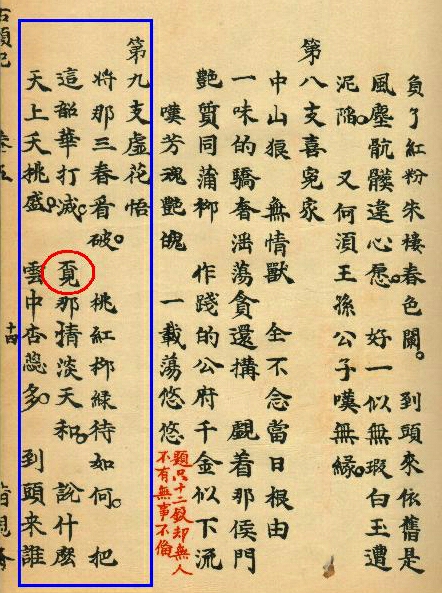 負了紅粉朱樓春色闌。到頭來依舊是
風塵骯髒違心愿。好一似無瑕白玉遭
泥陷。又何湏王孫公子嘆無緣。
第八支喜冤家
中山狼 無情獸 全不念當日根由
一味的驕奢淫蕩貪還搆 覷着那侯門
艷質同蒲柳 作踐的公府千金似下流
嘆芳魂艷魄 一載蕩悠悠
題只十二釵却無人
不有無事不備
第九支虛花悟
將那三春看破。桃紅柳綠待如何。把
這韶華打滅。覓那清淡天和。說什麼
天上夭桃盛。雲中杏蕊多。到頭來誰
十四